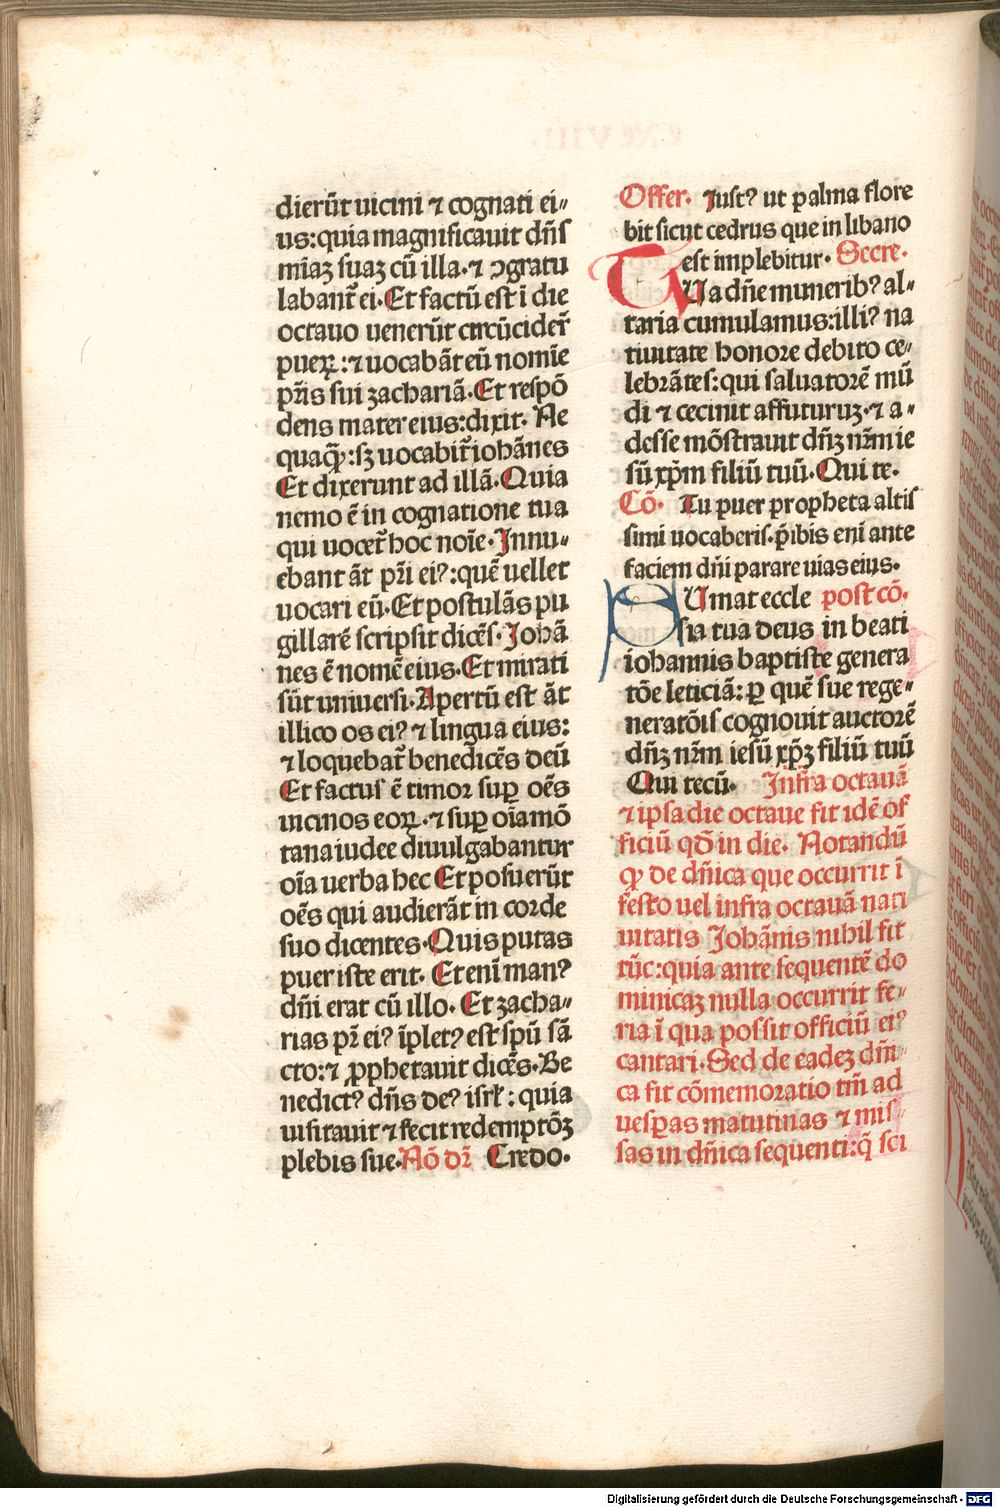 dierūt uicini ⁊ cognati ei⸗
us:quia magnificauit dn̄s
miāꝫ suaꝫ cū illa.⁊ ↄgratu
labant̄ ei.Et factū est ī die
octauo uenerūt circūcider̄
pueꝝ:⁊ uocabāt eū nomīe
pr̄is sui zachariā.Et respō
dens mater eius:dixit. Ne
quaꝙ̄:sꝫ uocabit̄ iohānes
Et dixerunt ad illā.Quia
nemo ē in cognatione tua
qui uocet̄ hoc noīe.Innu⸗
ebant āt pr̄i eiꝰ:quē uellet
uocari eū.Et postulās pu
gillarē scripsit dicēs.Johā
nes ē nomē eius.Et mirati
sūt uniuersi.Apertū est āt
illico os eiꝰ ⁊ lingua eius:
⁊ loquebat̄ benedicēs deū
Et factus ē timor suꝑ oēs
uicinos eoꝝ.⁊ suꝑ oīa mō
tana iudee diuulgabantur
oīa uerba hec Et posuerūt
oēs qui audierāt in corde
suo dicentes.Quis putas
puer iste erit. Et enī manꝰ
dn̄i erat cū illo. Et zacha⸗
rias pr̄ eiꝰ īpletꝰ est spū sā
cto:⁊ ꝓphetauit dicēs.Be
nedictꝰ dn̄s deꝰ isrl̄: quia
uisitauit ⁊ fecit redemptōꝫ
plebis sue.Nō dr̄ Credo.
Offer. Justꝰ ut palma flore
bit sicut cedrus que in libano
est implebitur. Secre.
TUa dn̄e muneribꝰ al⸗
taria cumulamus:illiꝰ na
tiuitatē honore debito ce⸗
lebrātes:qui saluatorē mū
di ⁊ cecinit affuturuꝫ.⁊ a⸗
desse mōstrauit dn̄ꝫ nr̄m ie
sū xp̄m filiū tuū. Qui te.
Cō. Tu puer propheta altis
simi uocaberis.p̄ibis enī ante
faciem dn̄i parare uias eius.
SUmat eccle post cō.
sia tua deus in beati
iohannis baptiste genera
tōe leticiā: ꝑ quē sue rege⸗
neratōis cognouit auctorē
dn̄ꝫ nr̄m iesū xp̄ꝫ filiū tuū
Qui tecū. Infra octauā
⁊ ipsa die octaue fit idē of
ficiū qd̄ in die. Notandū
ꝙ de dn̄ica que occurrit ī
festo uel infra octauā nati
uitatis Johānis nihil fit
tūc:quia ante sequentē do
minicaꝫ nulla occurrit fe⸗
ria ī qua possit officiū eiꝰ
cantari.Sed de eadeꝫ dn̄i⸗
ca fit cōmemoratio tm̄ ad
uesꝑas matutinas ⁊ mis⸗
sas in dn̄ica sequenti:q̄ sci
Digitalisierung gefördert durch die Deutsche Forschungsgemeinschaft - DFG